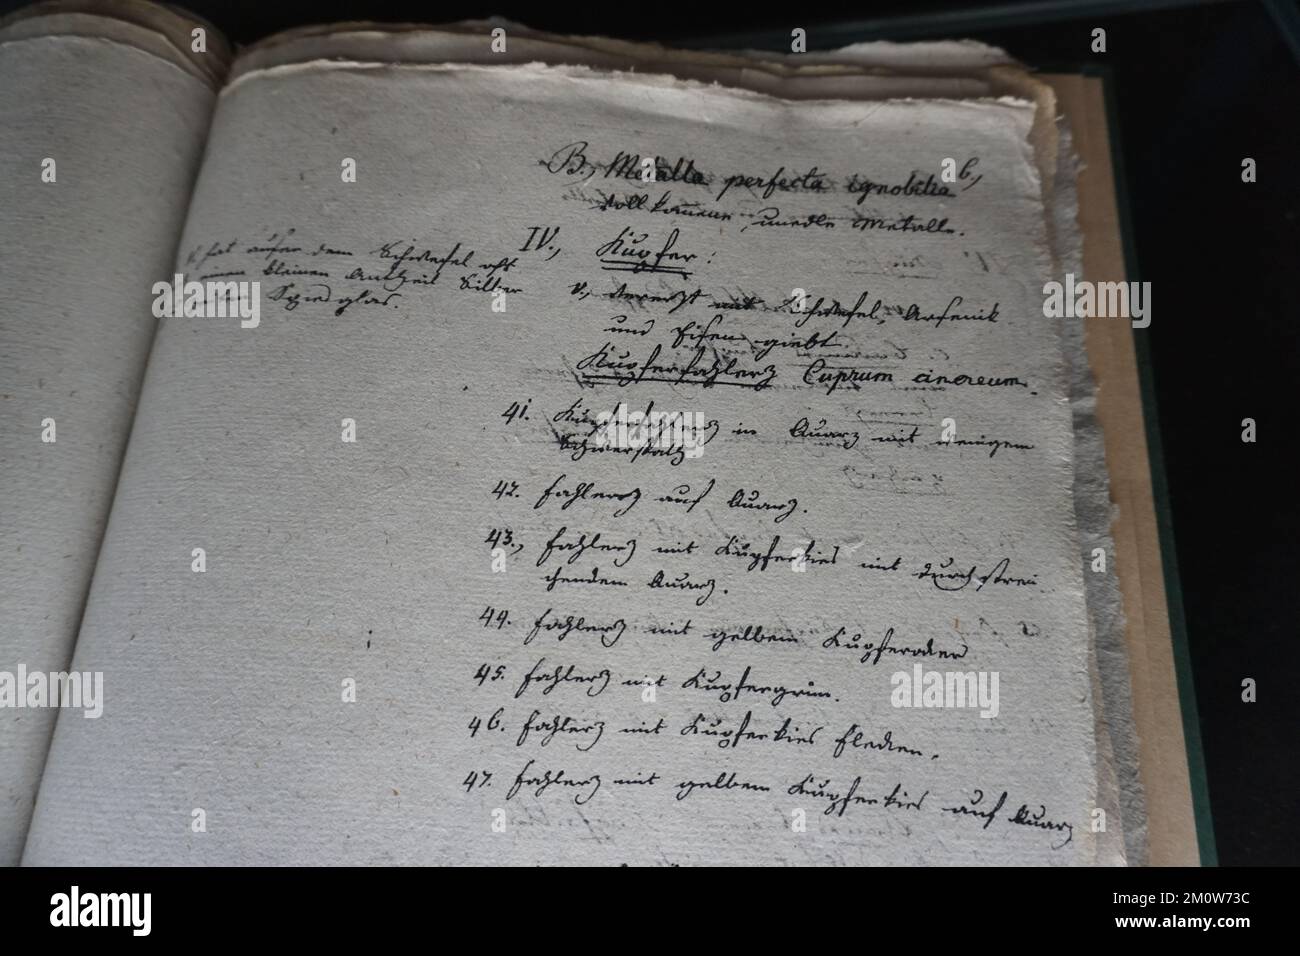 B., Metalla perfecta ignobilia b.,
Vollkom̅ene unedle Metalle.
v. hat außer dem Schwefel oft
einen kleinen Antheil Silber
oder Spiesglas.
IV., Kupfer:
v., vererzt mit Schwefel, Arsenik
und Eisen giebt.
Kupferfahlerz Cuprum cinereum.
41. Kupferfahlerz in Quarz mit wenigem
Schwerspath
42. Fahlerz auf Quarz.
43., Fahlerz mit Kupferkies mit durchstrei
chendem Quarz.
44. Fahlerz mit gelbem Kupfer
45. Fahlerz mit Kupfergrün.
46. Fahlerz mit Kupferkies Flecken.
47. Fahlerz mit gelbem Kupferkies auf Quarz
alamy
alamy
Image ID: 2M0W73C
www.alamy.com